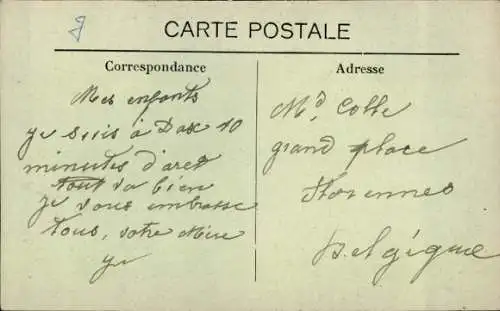 CARTE POSTALE
Correspondance
Mes enfants
je suis à Dax 10
minutes d'aret
tout va bien
je vous embrasse
tous, votre Mère
Adresse
Md Colle
grand place
Florennes
Belgigue